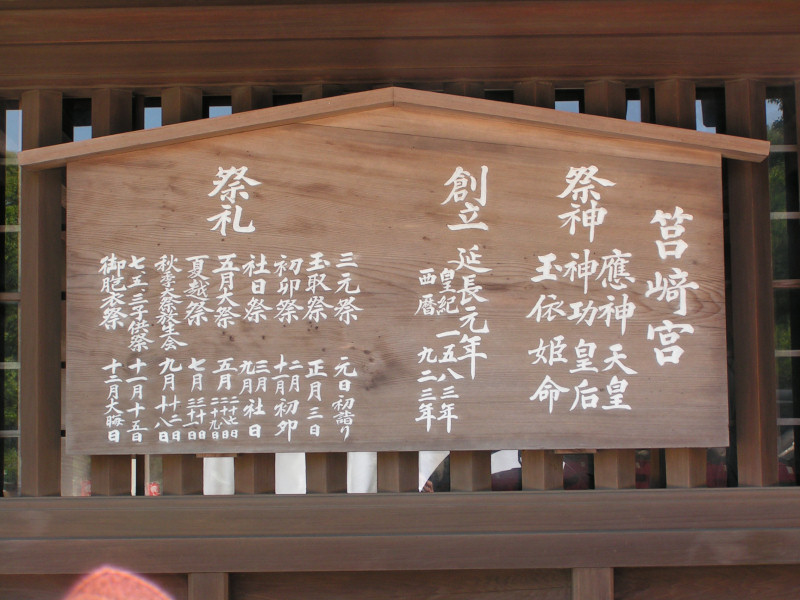 筥崎宮
祭神
應神天皇
神功皇后
玉依姫命
創立
延長元年
皇紀 一五八三年
西暦 九二三年
祭礼
三元祭 元日初詣り
玉取祭 正月三日
初卯祭 二月十一月初卯
社日祭 三月九月社日
五月大祭 五月
夏越祭 七月
秋季大祭放生会 九月十二日十八日
七、五、三子供祭 十一月十五日
御胞衣祭 十二月大晦日